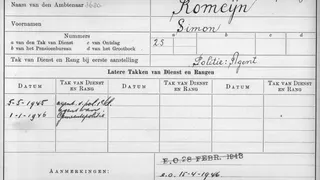 Naam van den Ambtenaar 3680 Romeijn
Voornamen Simon
Nummers
a van den Tak van Dienst c van Ontslag
b van het Pensioenbureau d van het Grootboek
a b c d
25
Tak van Dienst en Rang bij eerste aanstelling Politie: Agent
Latere Takken van Dienst en Rangen
DATUM TAK VAN DIENST EN RANG DATUM TAK VAN DIENST EN RANG DATUM TAK VAN DIENST EN RANG
5-5-1945 agent v. politie
1-1-1946 agent van
Gemeentepolitie
E.O. 28 FEBR. 1946
AANMERKINGEN: E.O. 15-4-1946